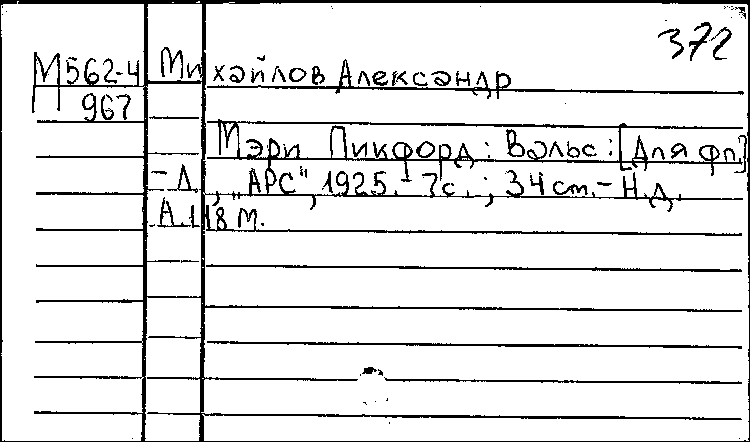 372
М562-4 Михайлов Александр
967
Мэри Пикфорд: Вальс: [Для фп.]
- Л., „АРС", 1925. - 7с.; 34 см. - Н.д.
А.118 М.